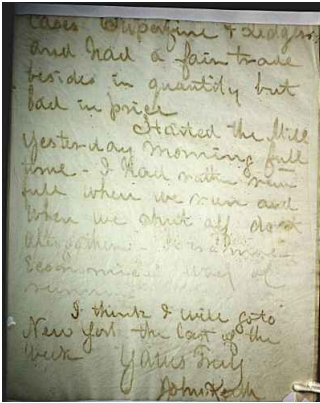 cases Superfine & ledgers
and had a fair trade
besides in quantity but
bad in price
Started the Mill
yesterday morning full
time - I had rather run
full when we run and
when we shut off do it
altogether - It is a more
Economical way of
running
I think I will go to
New York the last of the
Week
Yours Truly
John